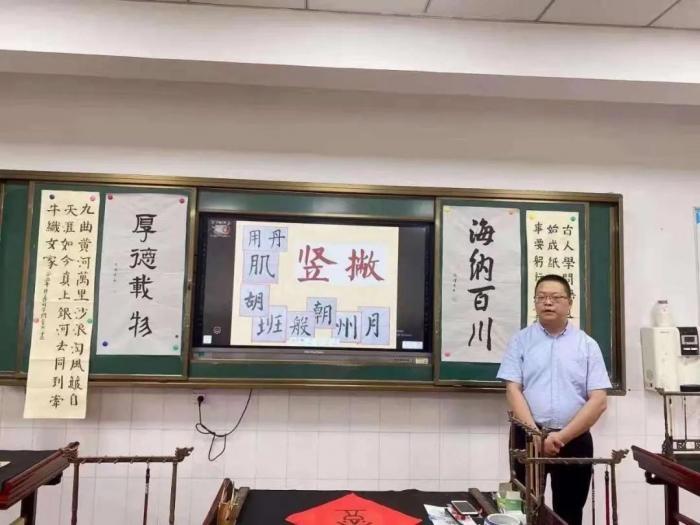 九曲黄河萬里沙浪淘風簸自
天涯如今直上銀河去同到牽
牛織女家
厚德載物
用丹
肌
竖撇
胡
班
般
朝
州
月
海納百川
古人學問
始成紙
事要躬行